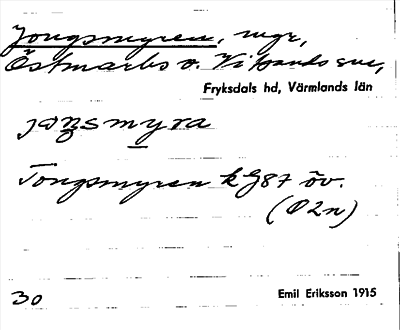 Jongsmyren, mgr,
Östmarks o. Vitsands snr,
Fryksdals hd, Värmlands län
jɔŋsmyra
Tongsmyren k G87 öv.
(Ö2n)
30 Emil Eriksson 1915